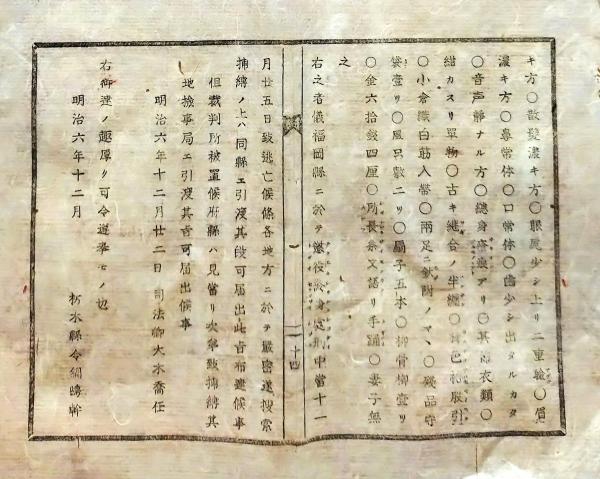 キ方〇散髪濃キ方〇眼尻少シ上リ二重瞼〇眉
濃キ方〇鼻常体〇口常体〇歯少シ出タルカタ
〇音声静ナル方〇總身瘡痕アリ〇其節衣類〇
紺カスリ單物〇古キ継合ノ半纏〇股引
〇小倉織白筋入帯〇兩足ニノマヽ〇残品守
袋壹ツ〇風呂敷二ツ〇扇子五本〇柳骨柳壹ツ
〇金六拾錢四厘〇所長条文語リ手踊〇妻子無
之
右之者儀福岡縣ニ於テ懲役終身處刑中當十一
二十四
月廿五日致逃亡候條各地方ニ於テ嚴密遂搜索
捕縛ノ上ハ同縣エ引渡其段可届出此旨布達候事
但裁判所被置候府縣ハ見當リ次第致捕縛其
地檢事局エ引渡其旨可届出候事
明治六年十二月廿二日 司法卿大木喬任
右御達ノ趣厚ク可令遵奉モノ也
明治六年十二月 栃木縣令鍋嶋幹